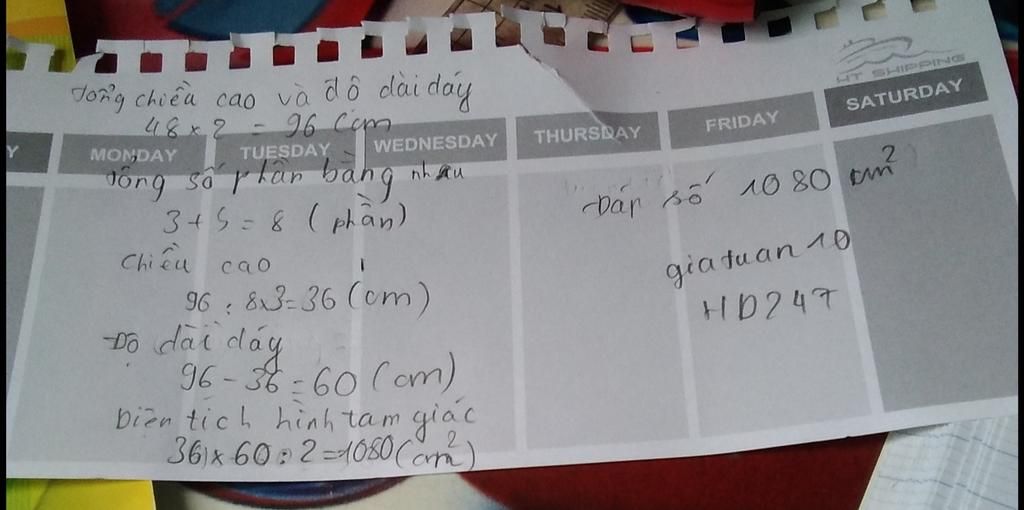 HT SHIPPING
Y MONDAY TUESDAY WEDNESDAY THURSDAY FRIDAY SATURDAY
Tổng chiều cao và độ dài dáy
48 x 2 = 96 (cm
Tổng số phần bằng nhau
3 + 5 = 8 (phần)
Chiều cao
96 : 8x3=36 (cm)
Độ dài dáy
96 - 36 = 60 (cm)
Diện tích hình tam giác
36 x 60 : 2 = 1080 (cm²)
Đáp số 1080 cm²
giatuan10
HD247